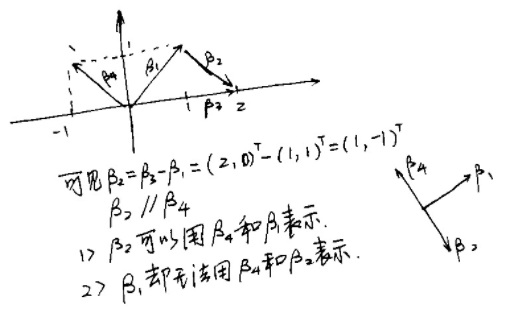 1
β₄ β₁ β₂
-1 1 β₃ 2
可见β₂=β₃-β₁=(2,0)ᵀ-(1,1)ᵀ=(1,-1)ᵀ
β₂//β₄
1> β₂可以用β₄和β₁表示.
2> β₁却无法用β₄和β₂表示.
β₄ β₁
β₂